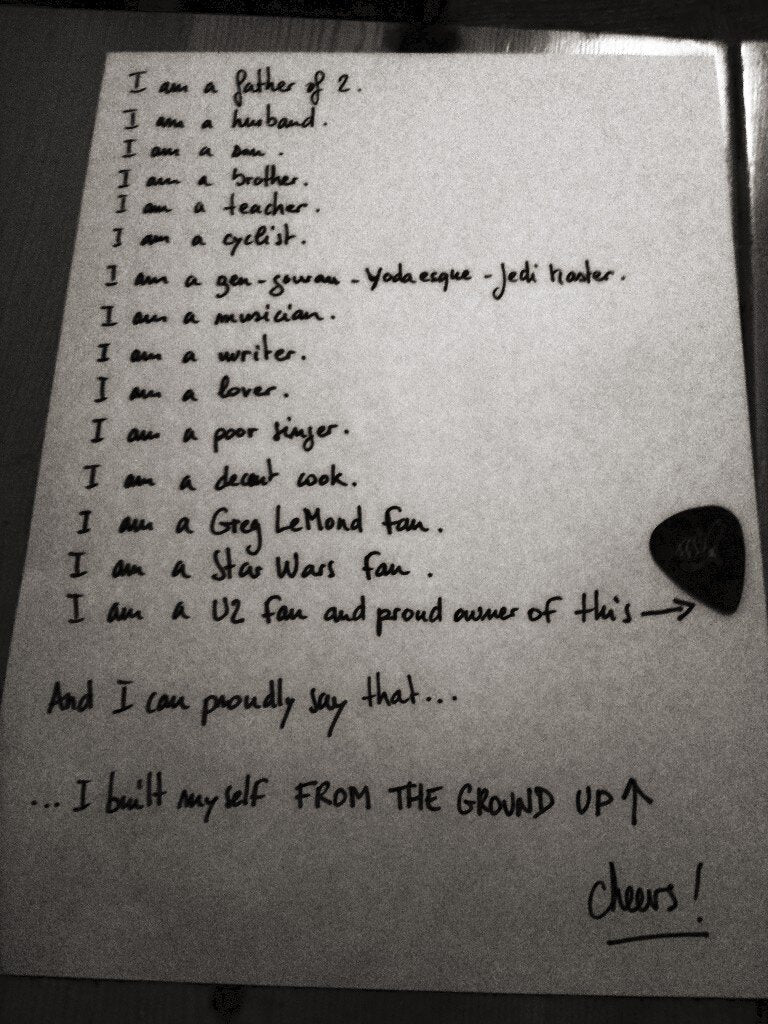 I am a father of 2.
I am a husband.
I am a son.
I am a brother.
I am a teacher.
I am a cyclist.
I am a gen-gowan-Yodaesque-Jedi Master.
I am a musician.
I am a writer.
I am a lover.
I am a poor singer.
I am a decent cook.
I am a Greg LeMond fan.
I am a Star Wars fan.
I am a U2 fan and proud owner of this →
And I can proudly say that...
... I built myself FROM THE GROUND UP ↑
Cheers!